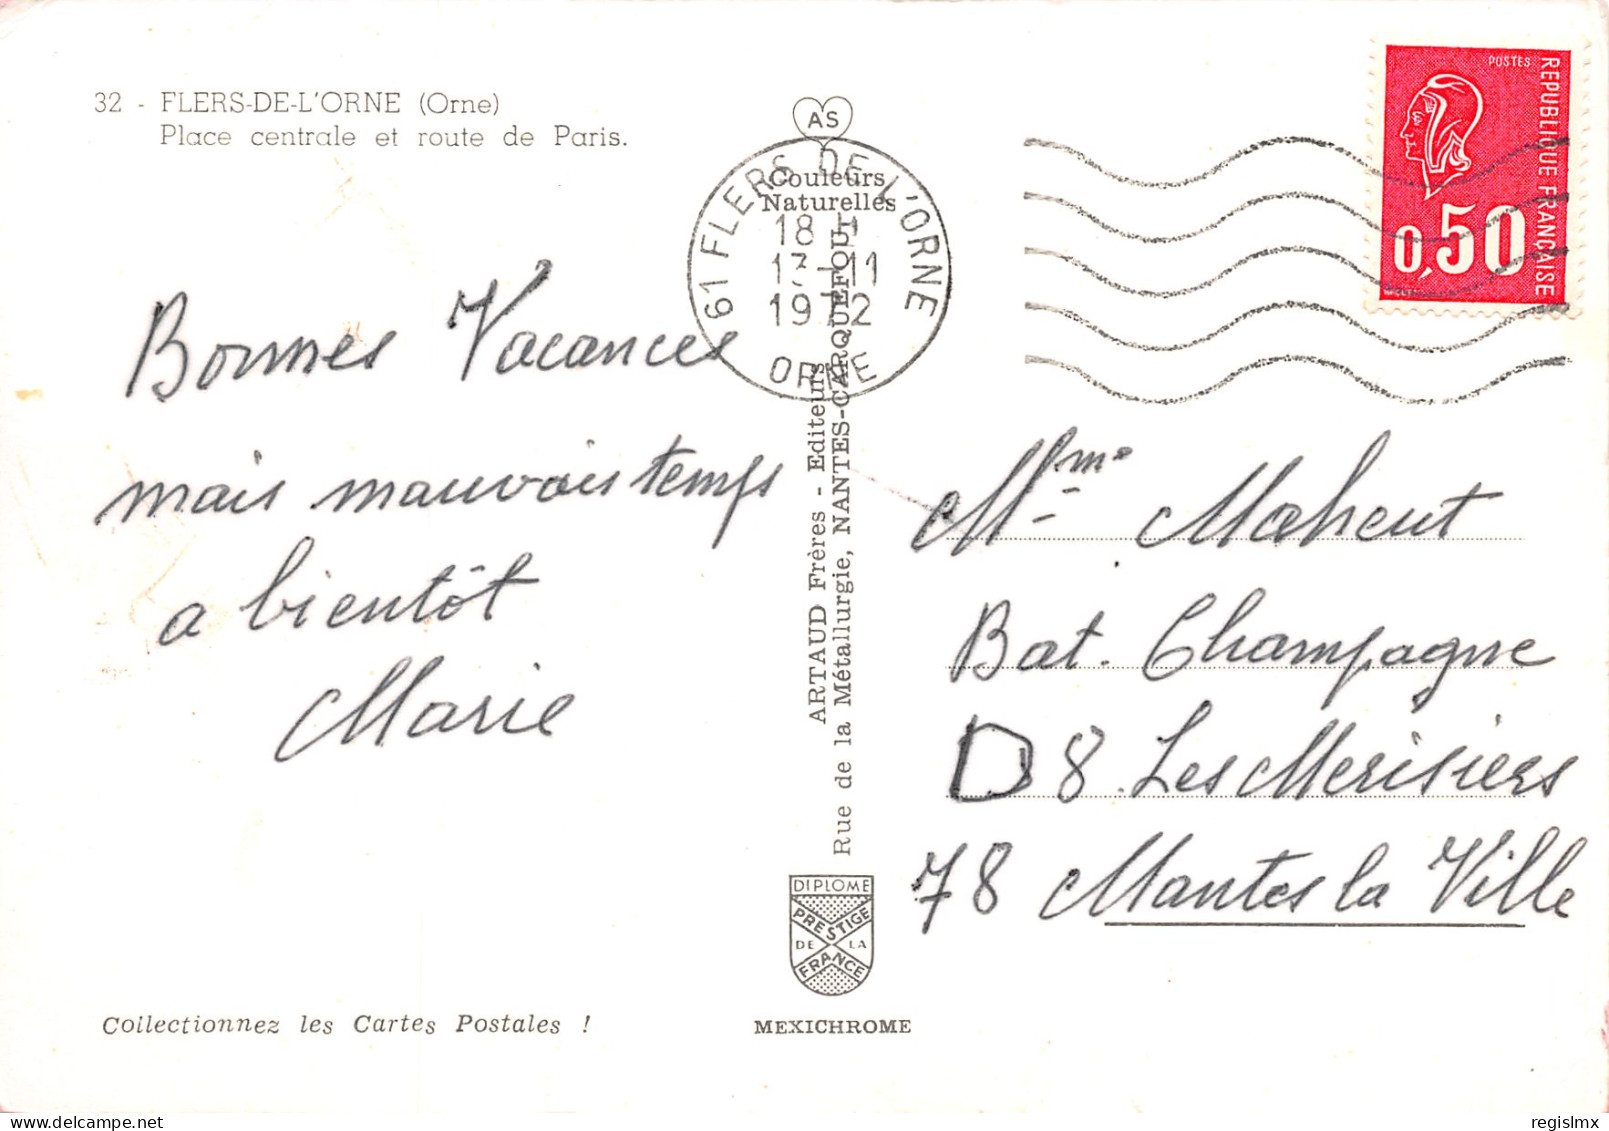 32 - FLERS-DE-L'ORNE (Orne)
Place centrale et route de Paris.
Bonnes Vacances
mais mauvais temps
a bientôt
Marie
Collectionnez les Cartes Postales !
AS
Couleurs
Naturelles
61 FLERS DE L'ORNE
18 H
13-11
1972
ORNE
ARTAUD Frères - Editeurs
Rue de la Métallurgie, NANTES-CARQUEFOU
DIPLOME
PRESTIGE
DE LA
FRANCE
MEXICHROME
POSTES
REPUBLIQUE FRANÇAISE
0,50
Mme Maheut
Bat. Champagne
D8 Les Merisiers
78 Mantes la Ville
regislmx